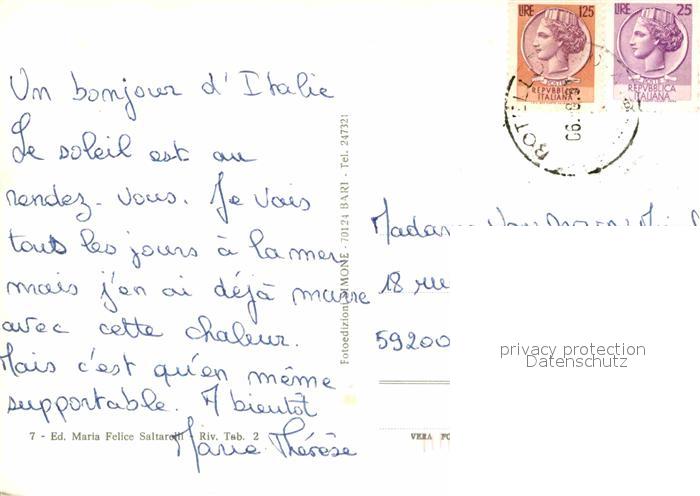 LIRE 125
REPVBBLICA
ITALIANA
LIRE 25
REPVBBLICA
ITALIANA
Un bonjour d'Italie
Le soleil est au
rendez-vous. Je vais
tous les jours à la mer
mais j'en ai déjà marre
avec cette chaleur.
Mais c'est qu'en même
supportable. A bientôt
Marie Thérèse
Fotoedizioni SIMONE - 70124 BARI - Tel. 247321
7 - Ed. Maria Felice Saltarelli - Riv. Tab. 2
18 rue
59200
privacy protection
Datenschutz
VERA